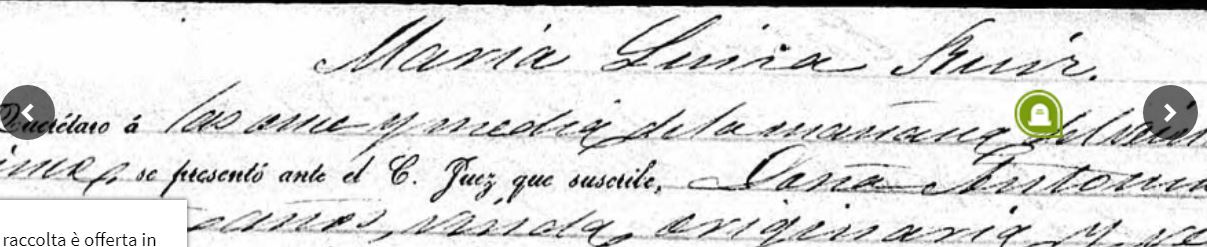 Maria Luisa Ruiz.
Querétaro á las once y media de la mañana del
se presentó ante el C. Juez que suscribe, Doña Antonia
años, viuda, originaria y
raccolta è offerta in